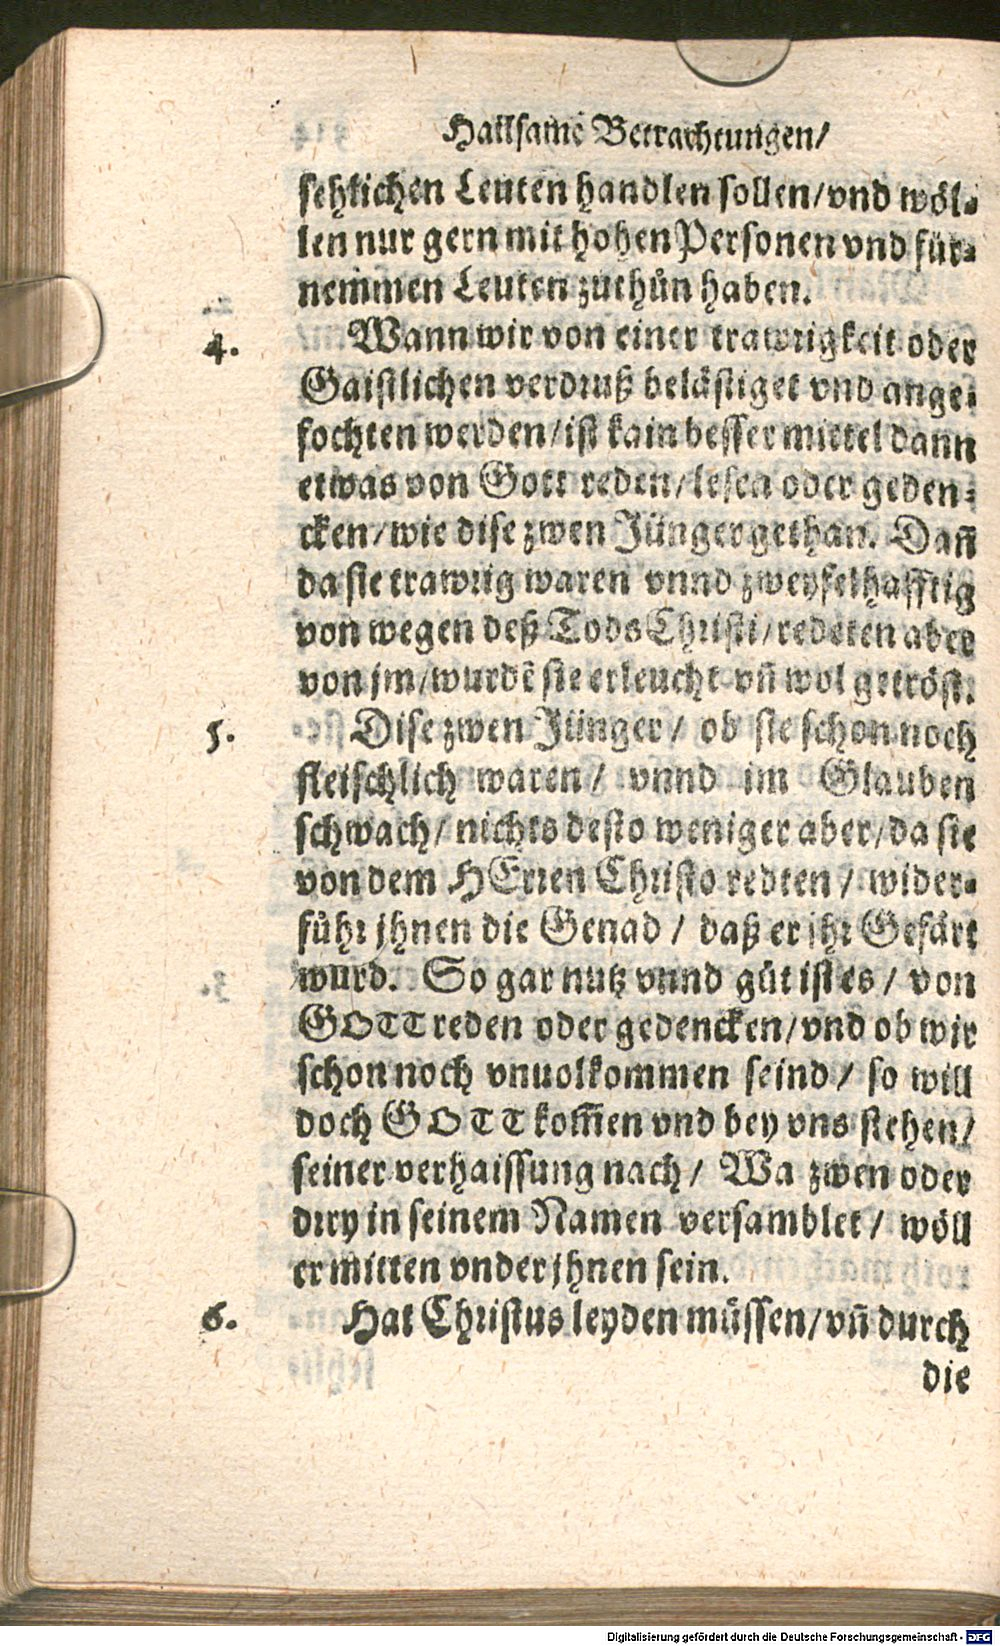 Hailsame Betrachtungen/
sehlichen Leuten handlen sollen/vnd wöl-
len nur gern mit hohen Personen vnd für-
nemmen Leuten zuthůn haben.
4. Wann wir von einer trawrigkeit oder
Gaistlichen verdruß belästiget vnd ange-
fochten werden/ist kain besser mittel dann
etwas von Gott reden/lesen oder geden-
cken/wie dise zwen Jünger gethan. Dañ
da sie trawrig waren vnnd zweyfelhafftig
von wegen deß Tods Christi/redeten aber
von jm/wurdẽ sie erleucht vñ wol getröst.
5. Dise zwen Jünger/ ob sie schon noch
fleischlich waren/ vnnd im Glauben
schwach/ nichts desto weniger aber/da sie
von dem HErren Christo redten/ wider-
fůhr jhnen die Genad/ daß er jhr Gefärt
wurd. So gar nutz vnnd gůt ist es/ von
GOTT reden oder gedencken/vnd ob wir
schon noch vnuolkommen seind/ so will
doch GOTT kom̃en vnd bey vns stehen/
seiner verhaissung nach/ Wa zwen oder
drey in seinem Namen versamblet/ wöll
er mitten vnder jhnen sein.
6. Hat Christus leyden müssen/vñ durch
die
Digitalisierung gefördert durch die Deutsche Forschungsgemeinschaft - DFG